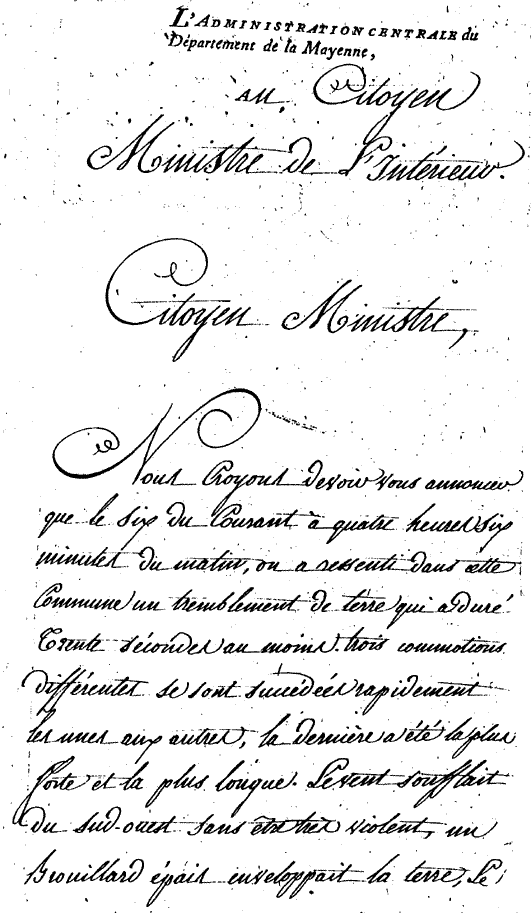 L'ADMINISTRATION CENTRALE du
Département de la Mayenne,
AU Citoyen
Ministre de L'Intérieur.
Citoyen Ministre,
Nous Croyons devoir vous annoncer
que le six du Courant à quatre heures six
minutes du matin, on a ressenti dans cette
Commune un tremblement de terre qui a duré
Trente sécondes au moins. trois commotions
différentes se sont succédées rapidement
les unes aux autres, la dernière a été la plus
forte et la plus longue. Le vent soufflait
du sud-ouest sans être très violent, un
Brouillard épais enveloppait la terre, Le